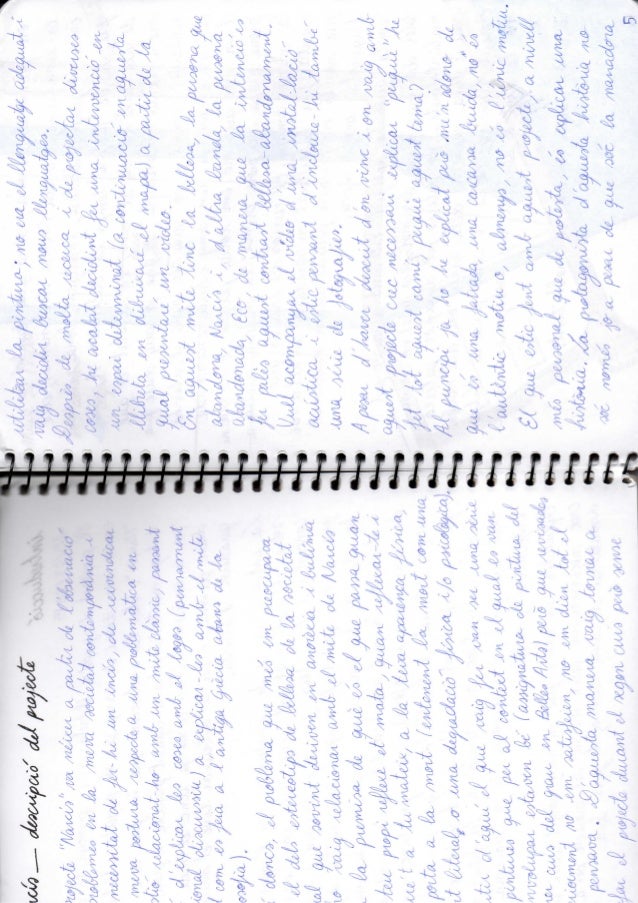 cís — descripció del projecte
rojecte "Narcís" va néixer a partir de l'observació
problemes en la meva societat contemporània i
necessitat de fer-hi un incís, de reivindicar
meva postura respecte a una problemàtica en
stió relacionat-ho amb un mite clàssic, passant
d'explicar les coses amb el logos (pensament
ional discursiu) a explicar-les amb el mite
t com es feia a l'antiga Grècia abans de la
osofia).
doncs, el problema que més em preocupava
el dels estereotips de bellesa de la societat
al que sovint deriven en anorèxia i bulímia
ho vaig relacionar amb el mite de Narcís
la premisa de què és el que passa quan
teu propi reflexe et mata, quan reflectar-te i
re't a tu mateix, a la teva aparença física,
porta a la mort (entenent la mort com una
t literal, o una degradació física i/o psicològica).
rtir d'aquí el que vaig fer van ser una sèrie
pintures que per al context en el qual es van
nvolupar estaven bé (assignatura de pintura del
er curs del grau en Belles Arts) però que revisades
vament no em satisfeien, no em deien tot el
pensava. D'aquesta manera vaig tornar a
far el projecte durant el segon curs però sense
utilitzar la pintura; no era el llenguatge adequat i
vaig decidir buscar nous llenguatges.
Després de molta recerca i de projectar diverses
coses, he acabat decidint fer una intervenció en
un espai determinat (a continuació en aquesta
llibreta en dibuixaré el mapa) a partir de la
qual presentaré un vídeo.
En aquest mite tinc la bellesa, la persona que
abandona, Narcís i, d'altra banda, la persona
abandonada, Eco de manera que la intenció és
fer palès aquest contrast bellesa-abandonament.
Vull acompanyar el vídeo d'una instal·lació
acústica i estic pensant d'incloure-hi també
una sèrie de fotografies.
A pesar d'haver descrit d'on vinc i on vaig amb
aquest projecte crec necessari explicar "perquè" he
fet tot aquest camí, perquè aquest tema?
Al principi ja ho he explicat però me'n adono de
que és una façada, una carcassa buida, no és
l'autèntic motiu o, almenys, no és l'únic motiu.
El que estic fent amb aquest projecte, a nivell
més personal que de protesta, és explicar una
història. La protagonista d'aquesta història no
sóc només jo a pesar de que sóc la narradora
5